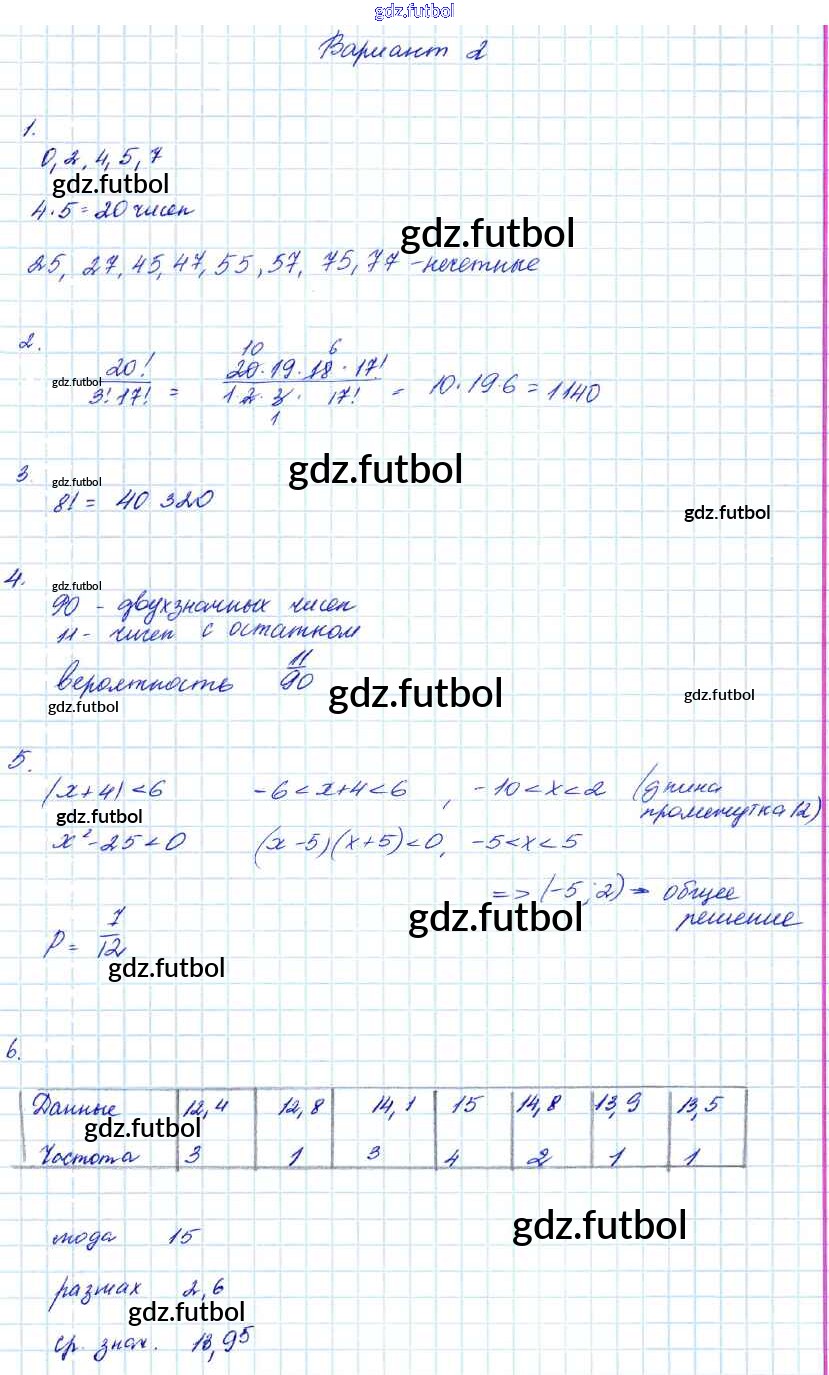 gdz.futbol
Вариант 2
1.
0, 2, 4, 5, 7
gdz.futbol
4·5=20 чисел
gdz.futbol
25, 27, 45, 47, 55, 57, 75, 77 - нечетные
2.
gdz.futbol
20!/3!17! = 20·19·18·17!/1·2·3·17! = 10·19·6 = 1140
10 6
1
gdz.futbol
3.
gdz.futbol
8! = 40 320
gdz.futbol
4.
gdz.futbol
90 - двухзначных чисел
11 - чисел с остатком
вероятность 11/90
gdz.futbol
gdz.futbol
gdz.futbol
5.
|x+4|<6 -6<x+4<6, -10<x<2 (длина промежутка 12)
gdz.futbol
x²-25<0 (x-5)(x+5)<0, -5<x<5
=> (-5; 2) - общее решение
gdz.futbol
P = 7/12
gdz.futbol
6.
Данные 12,4 12,8 14,1 15 14,8 13,9 13,5
gdz.futbol
Частота 3 1 3 4 2 1 1
gdz.futbol
мода 15
размах 2,6
gdz.futbol
ср. знач. 13,95